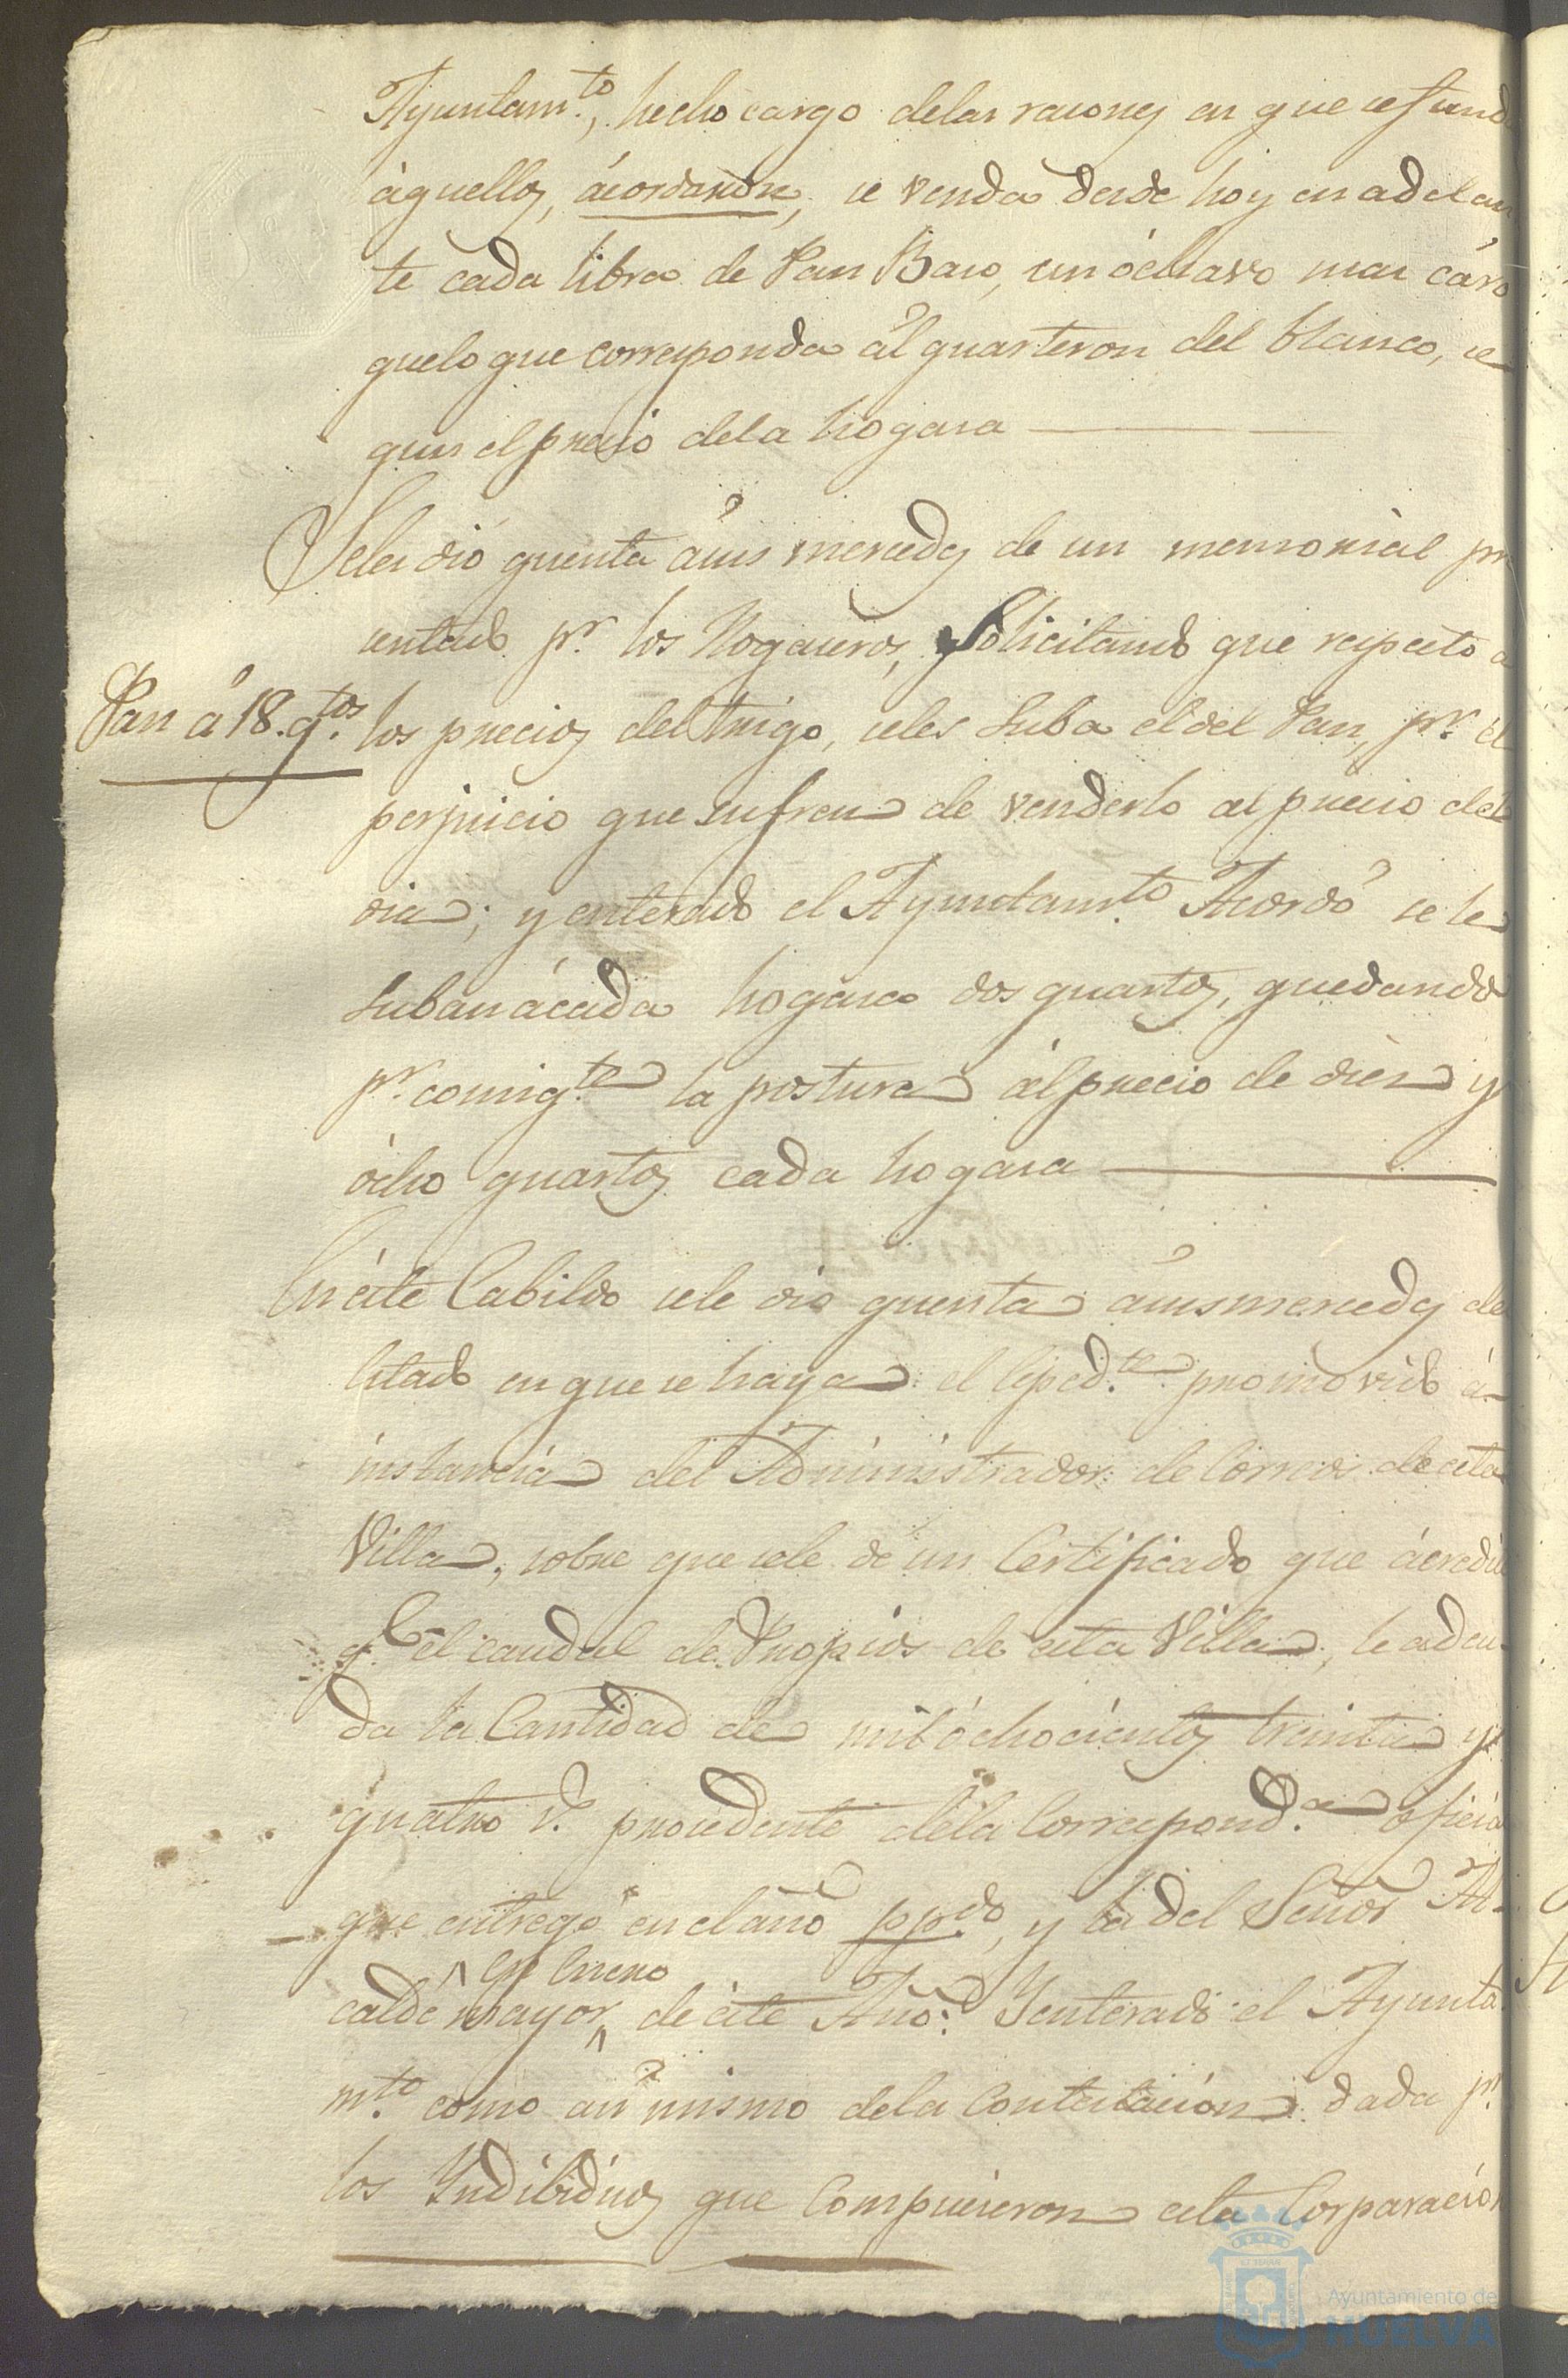 Ayuntam.to, hecho cargo delas rasones en que se fund
àquellos, àcordaron, se venda desde hoy en adelan
te cada libra de Pan Baso, un óchavo mas cáro
quelo que corresponda àl quarteron del blanco, se
gun el precio dela hogasa
Seles dió quenta àsus mercedes de un memorial pre
sentado p.r los Hogaseros, Solicitando que respecto a
Pan à 18. q.tos
los precios del trigo, seles suba el del Pan, p.r el
perjuicio que sufren de venderlo al precio del
dia; y enterado el Ayuntam.to Acordó se le
suban ácada hogasa dos quartos, quedando
p.r consig.te la postura àl precio de dies y
ócho quartos cada hogasa
En éste Cabildo sele dio quenta àsus mercedes del
estado en que se haya el Exped.te promovido á
instancia del Administrador de Correos de esta
Villa, sobre que sele dé un Certificado que ácredite
q.e el caudal de Propios de esta Villa, le adeu
da la Cantidad de mil óchocientos treinta y
quatro r.s procedente dela Correspond.a oficial
que entregó en el año pp.do, y la del Señor Al-
En Enero
calde mayor de éste Año. Yenterado el Ayunta
m.to como así mismo dela Contestacion dada p.r
los Yndibiduos que Compusieron esta Corporación
Ayuntamiento de
HUELVA